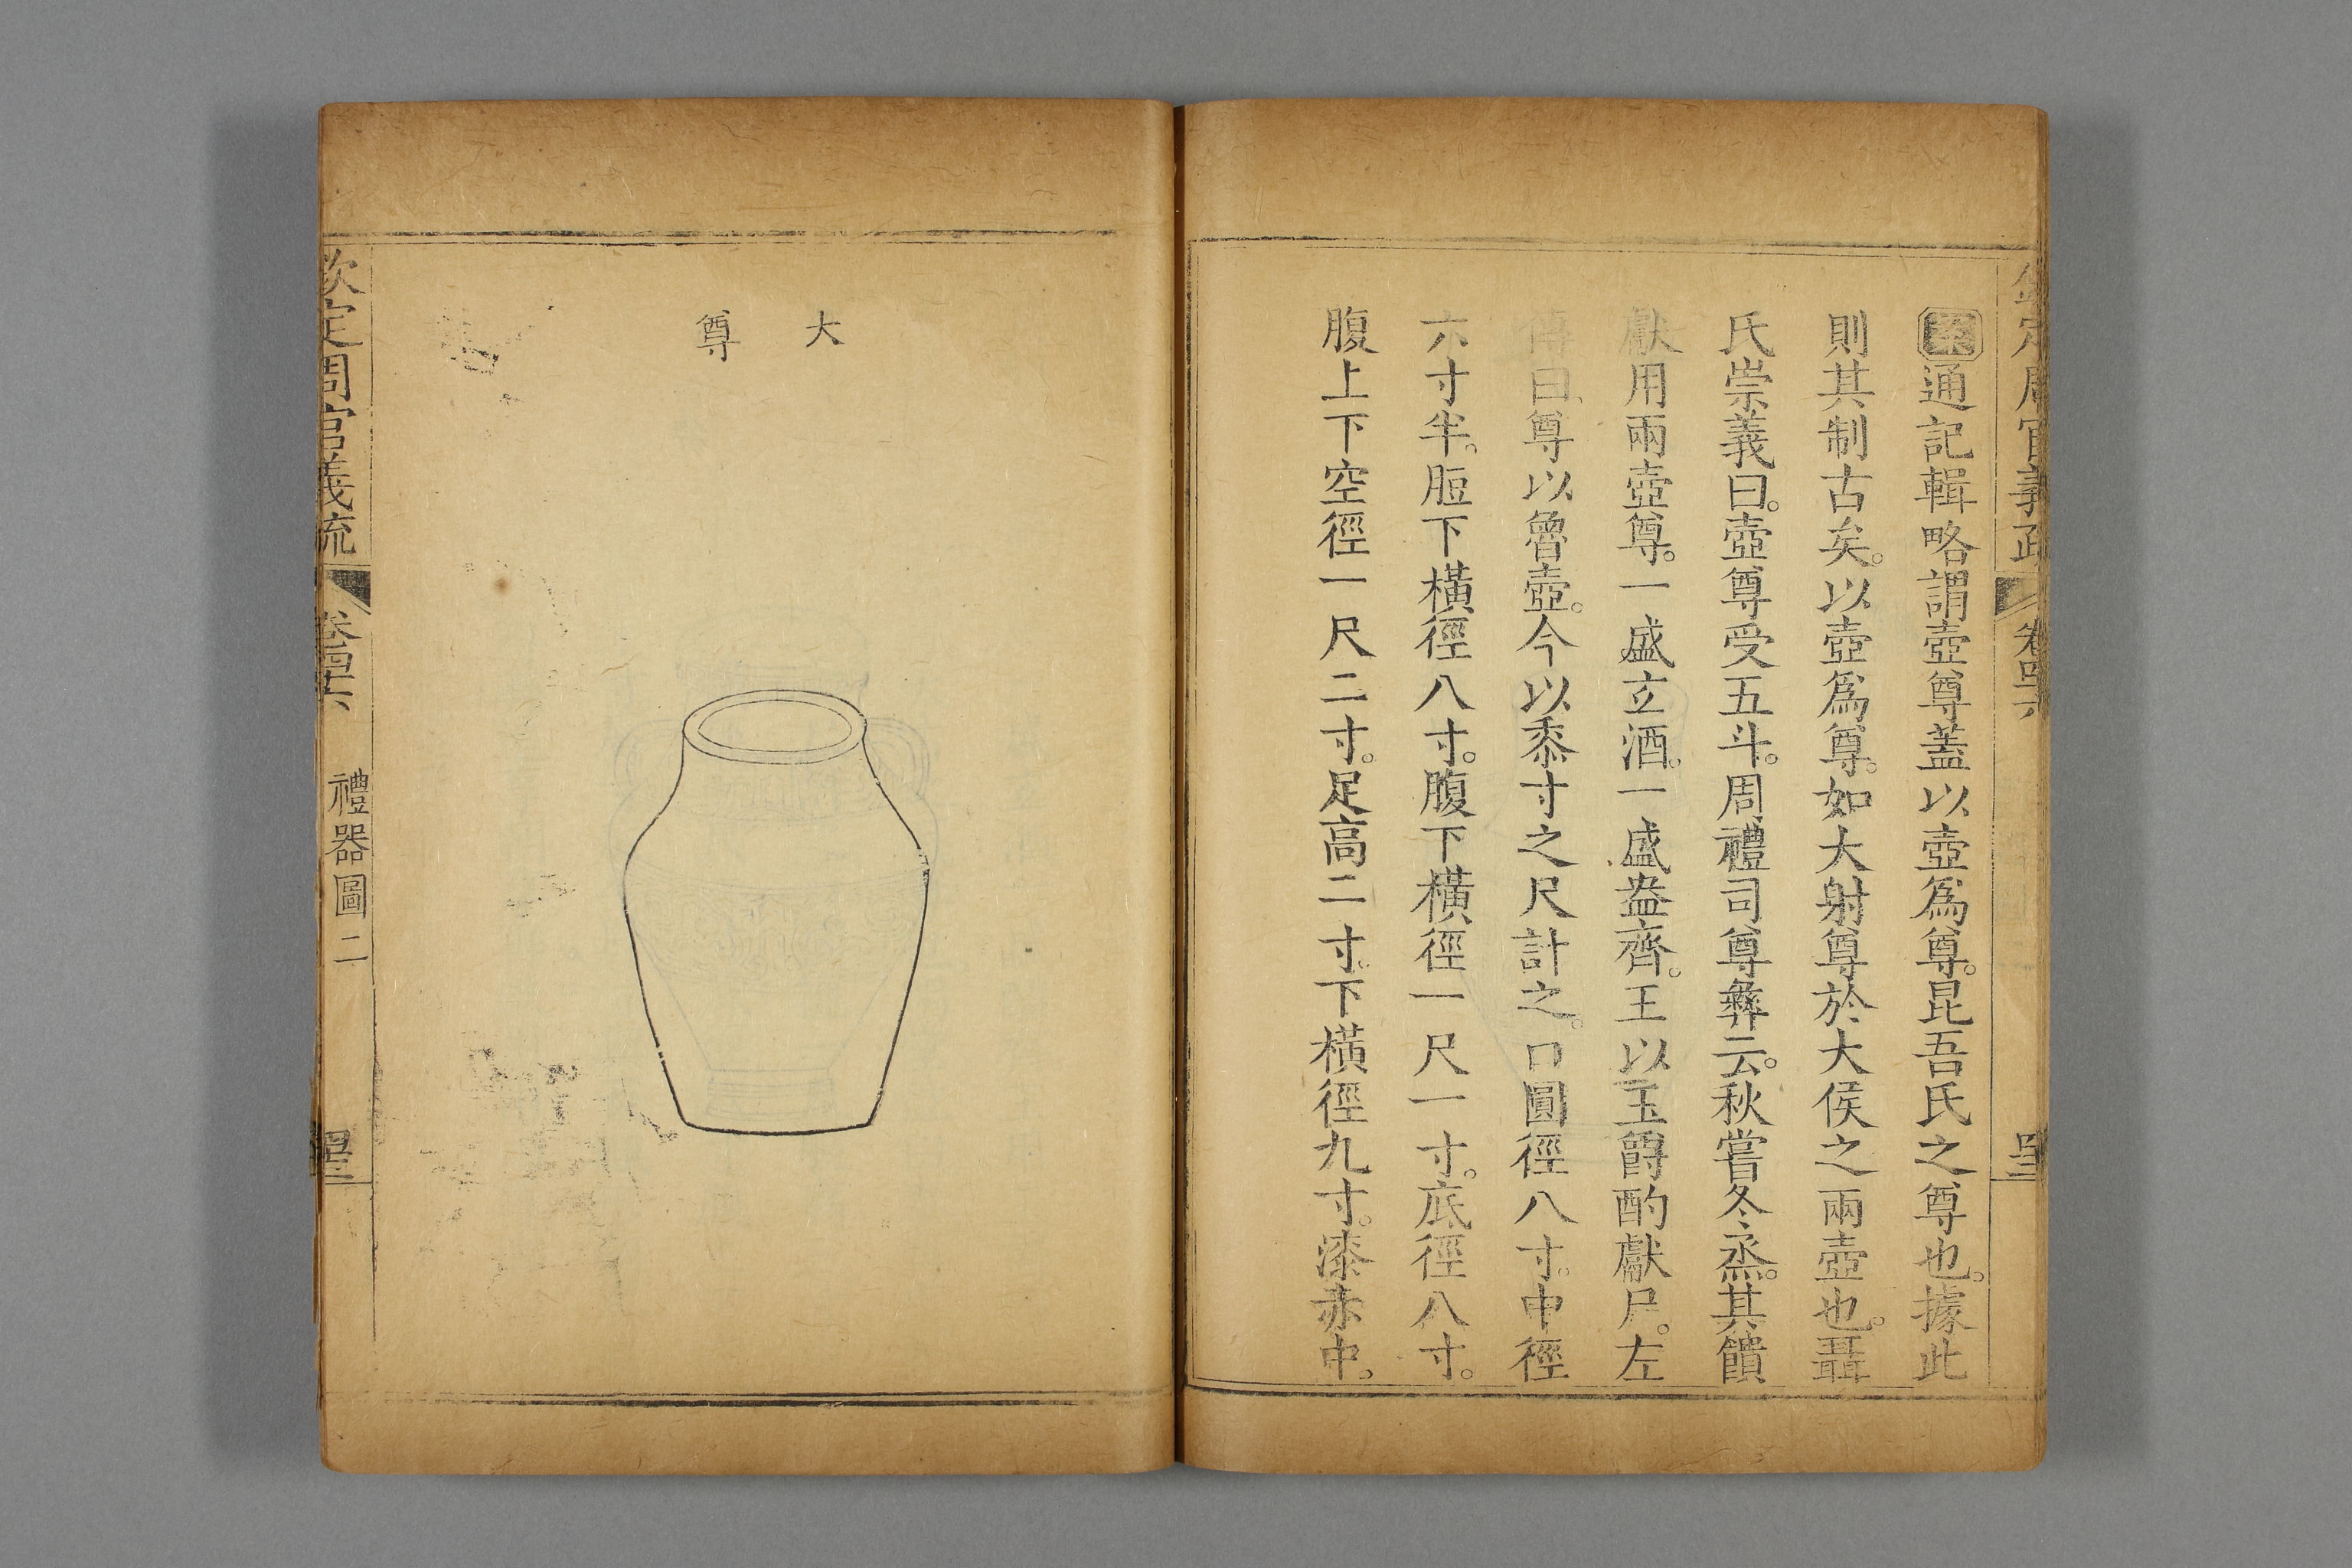 欽定周官義疏
卷四十六
案通記輯略謂壺尊蓋以壺爲尊。昆吾氏之尊也。據此
則其制古矣。以壺爲尊。如大射尊於大侯之兩壺也。聶
氏崇義曰。壺尊受五斗。周禮司尊彝云。秋嘗冬烝。其饋
獻用兩壺尊。一盛立酒。一盛盎齊。王以玉爵酌獻尸。左
傳曰尊以魯壺。今以黍寸之尺計之。口圓徑八寸。中徑
六寸半。脰下橫徑八寸。腹下橫徑一尺一寸。底徑八寸。
腹上下空徑一尺二寸。足高二寸。下橫徑九寸。漆赤中。
大
尊
欽定周官義疏
卷四十六
禮器圖二